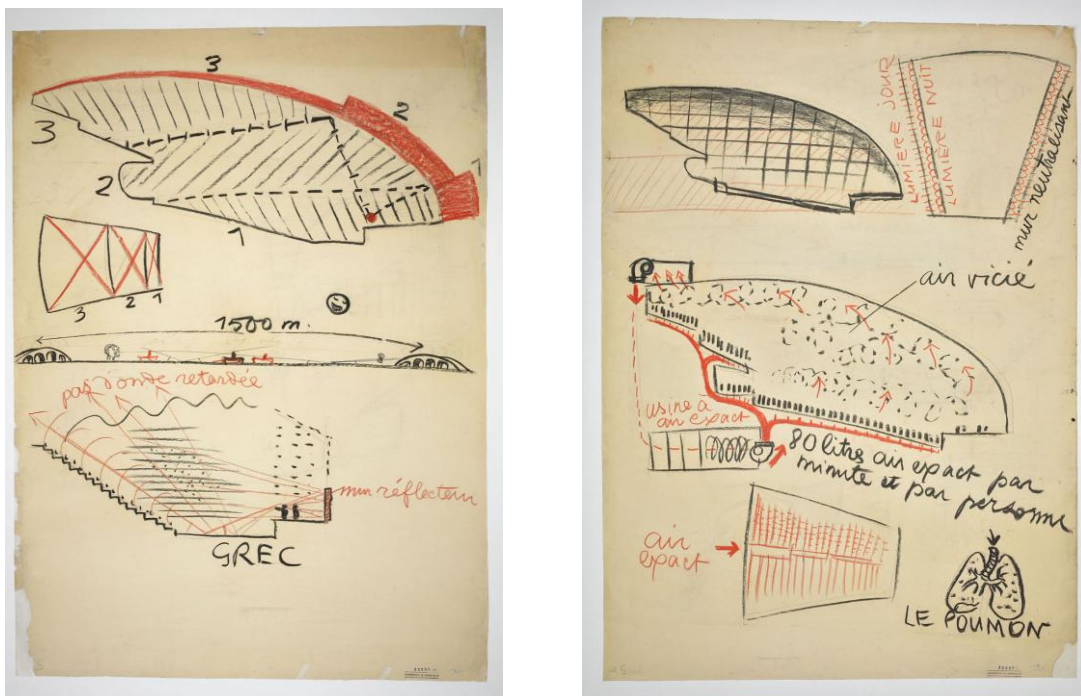 3
2
1
3
2
1
3
2
1
1500 m.
pas d'onde retardée
mur réflecteur
GREC
LUMIERE JOUR
LUMIÈRE NUIT
mur neutralisant
air vicié
usine à
air exact
80 litres air exact par
minute et par personne
air
exact
LE POUMON